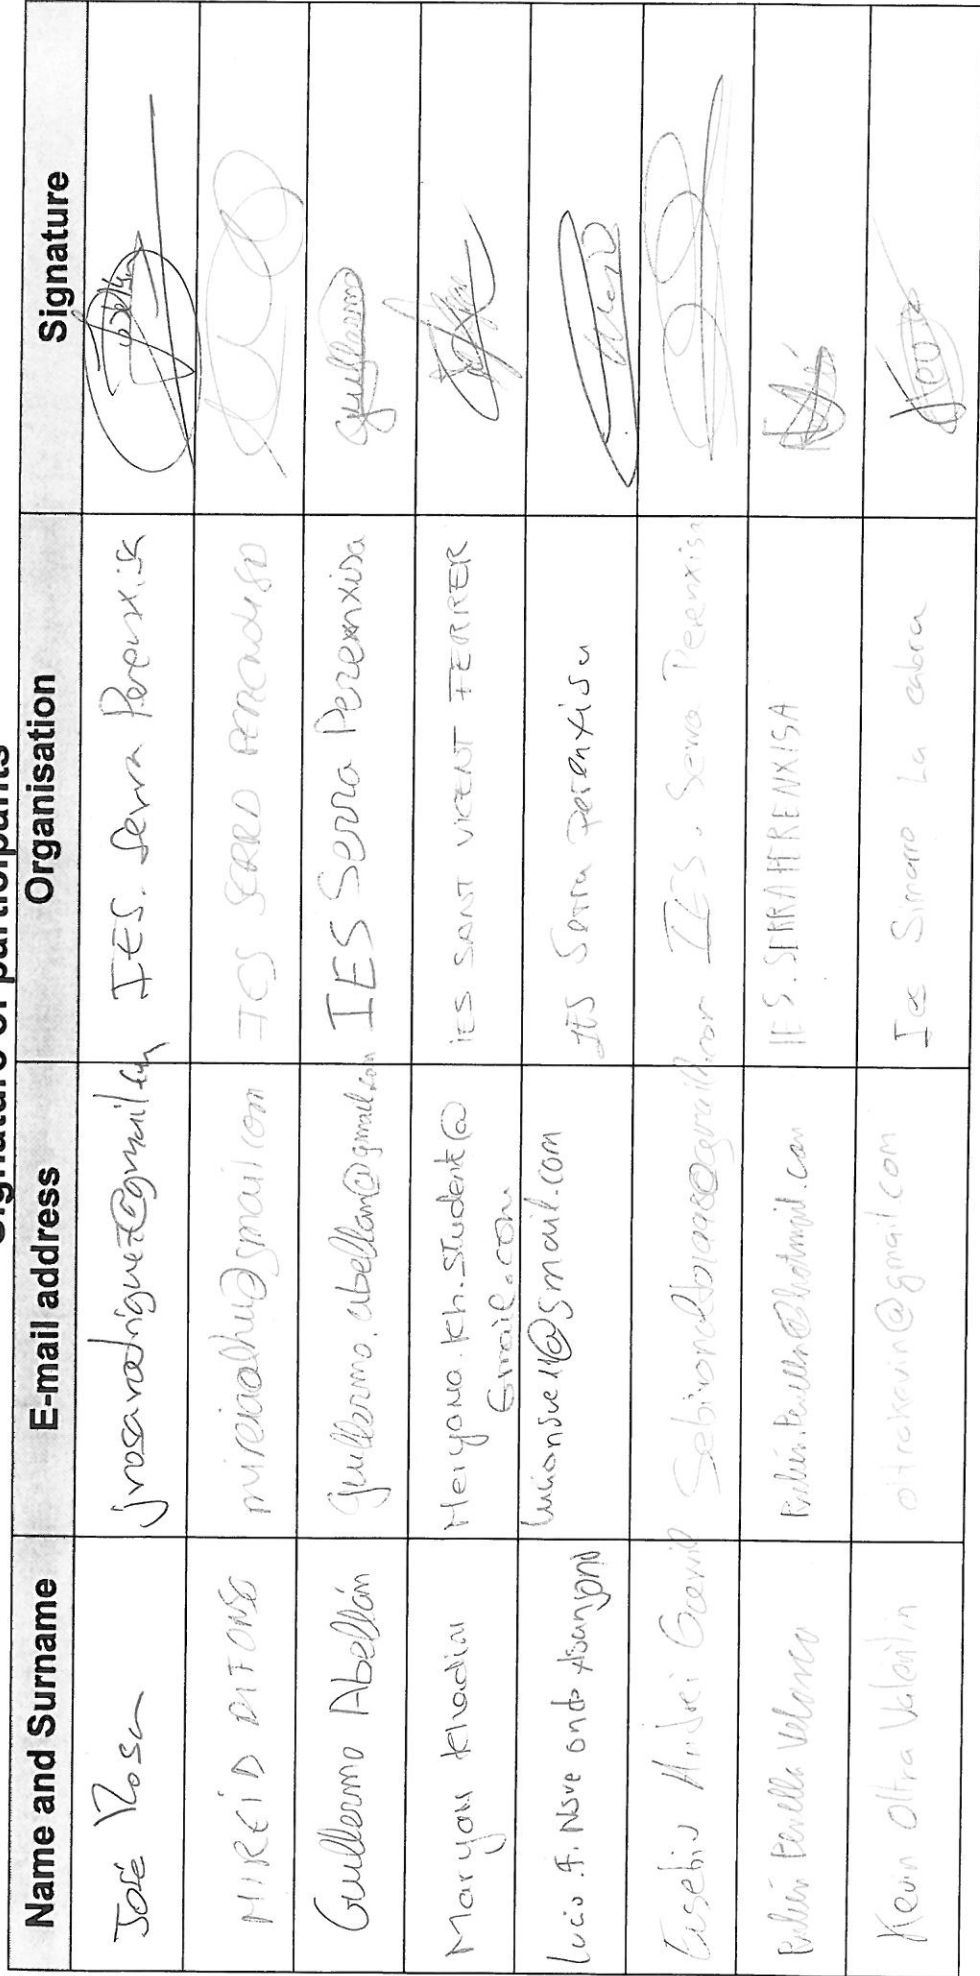 Signature of participants
Name and Surname E-mail address Organisation Signature
José Rosa jrosarodriguez@gmail.com IES. Serra Perenxisa
MIREIA @gmail.com IES SERRA PERENXISA
Guillermo Abellán guillermo.abellan@gmail.com IES Serra Perenxisa Guillermo
Maryam Khadim Meryama.Kh.Student@ IES SANT VICENT FERRER
Gmail.com
Lucio .F. Nsue ondo lucionsue11@gmail.com IES Serra perenxisa
Eusebiu Andrei Gavril IES. Serra Perenxisa
Rubén Penella Velasco Ruben.Penella@hotmail.com IES. SERRA PERENXISA
Kevin Oltra Valentin oltrakevin@gmail.com Ies Simarro La cabra Kevin